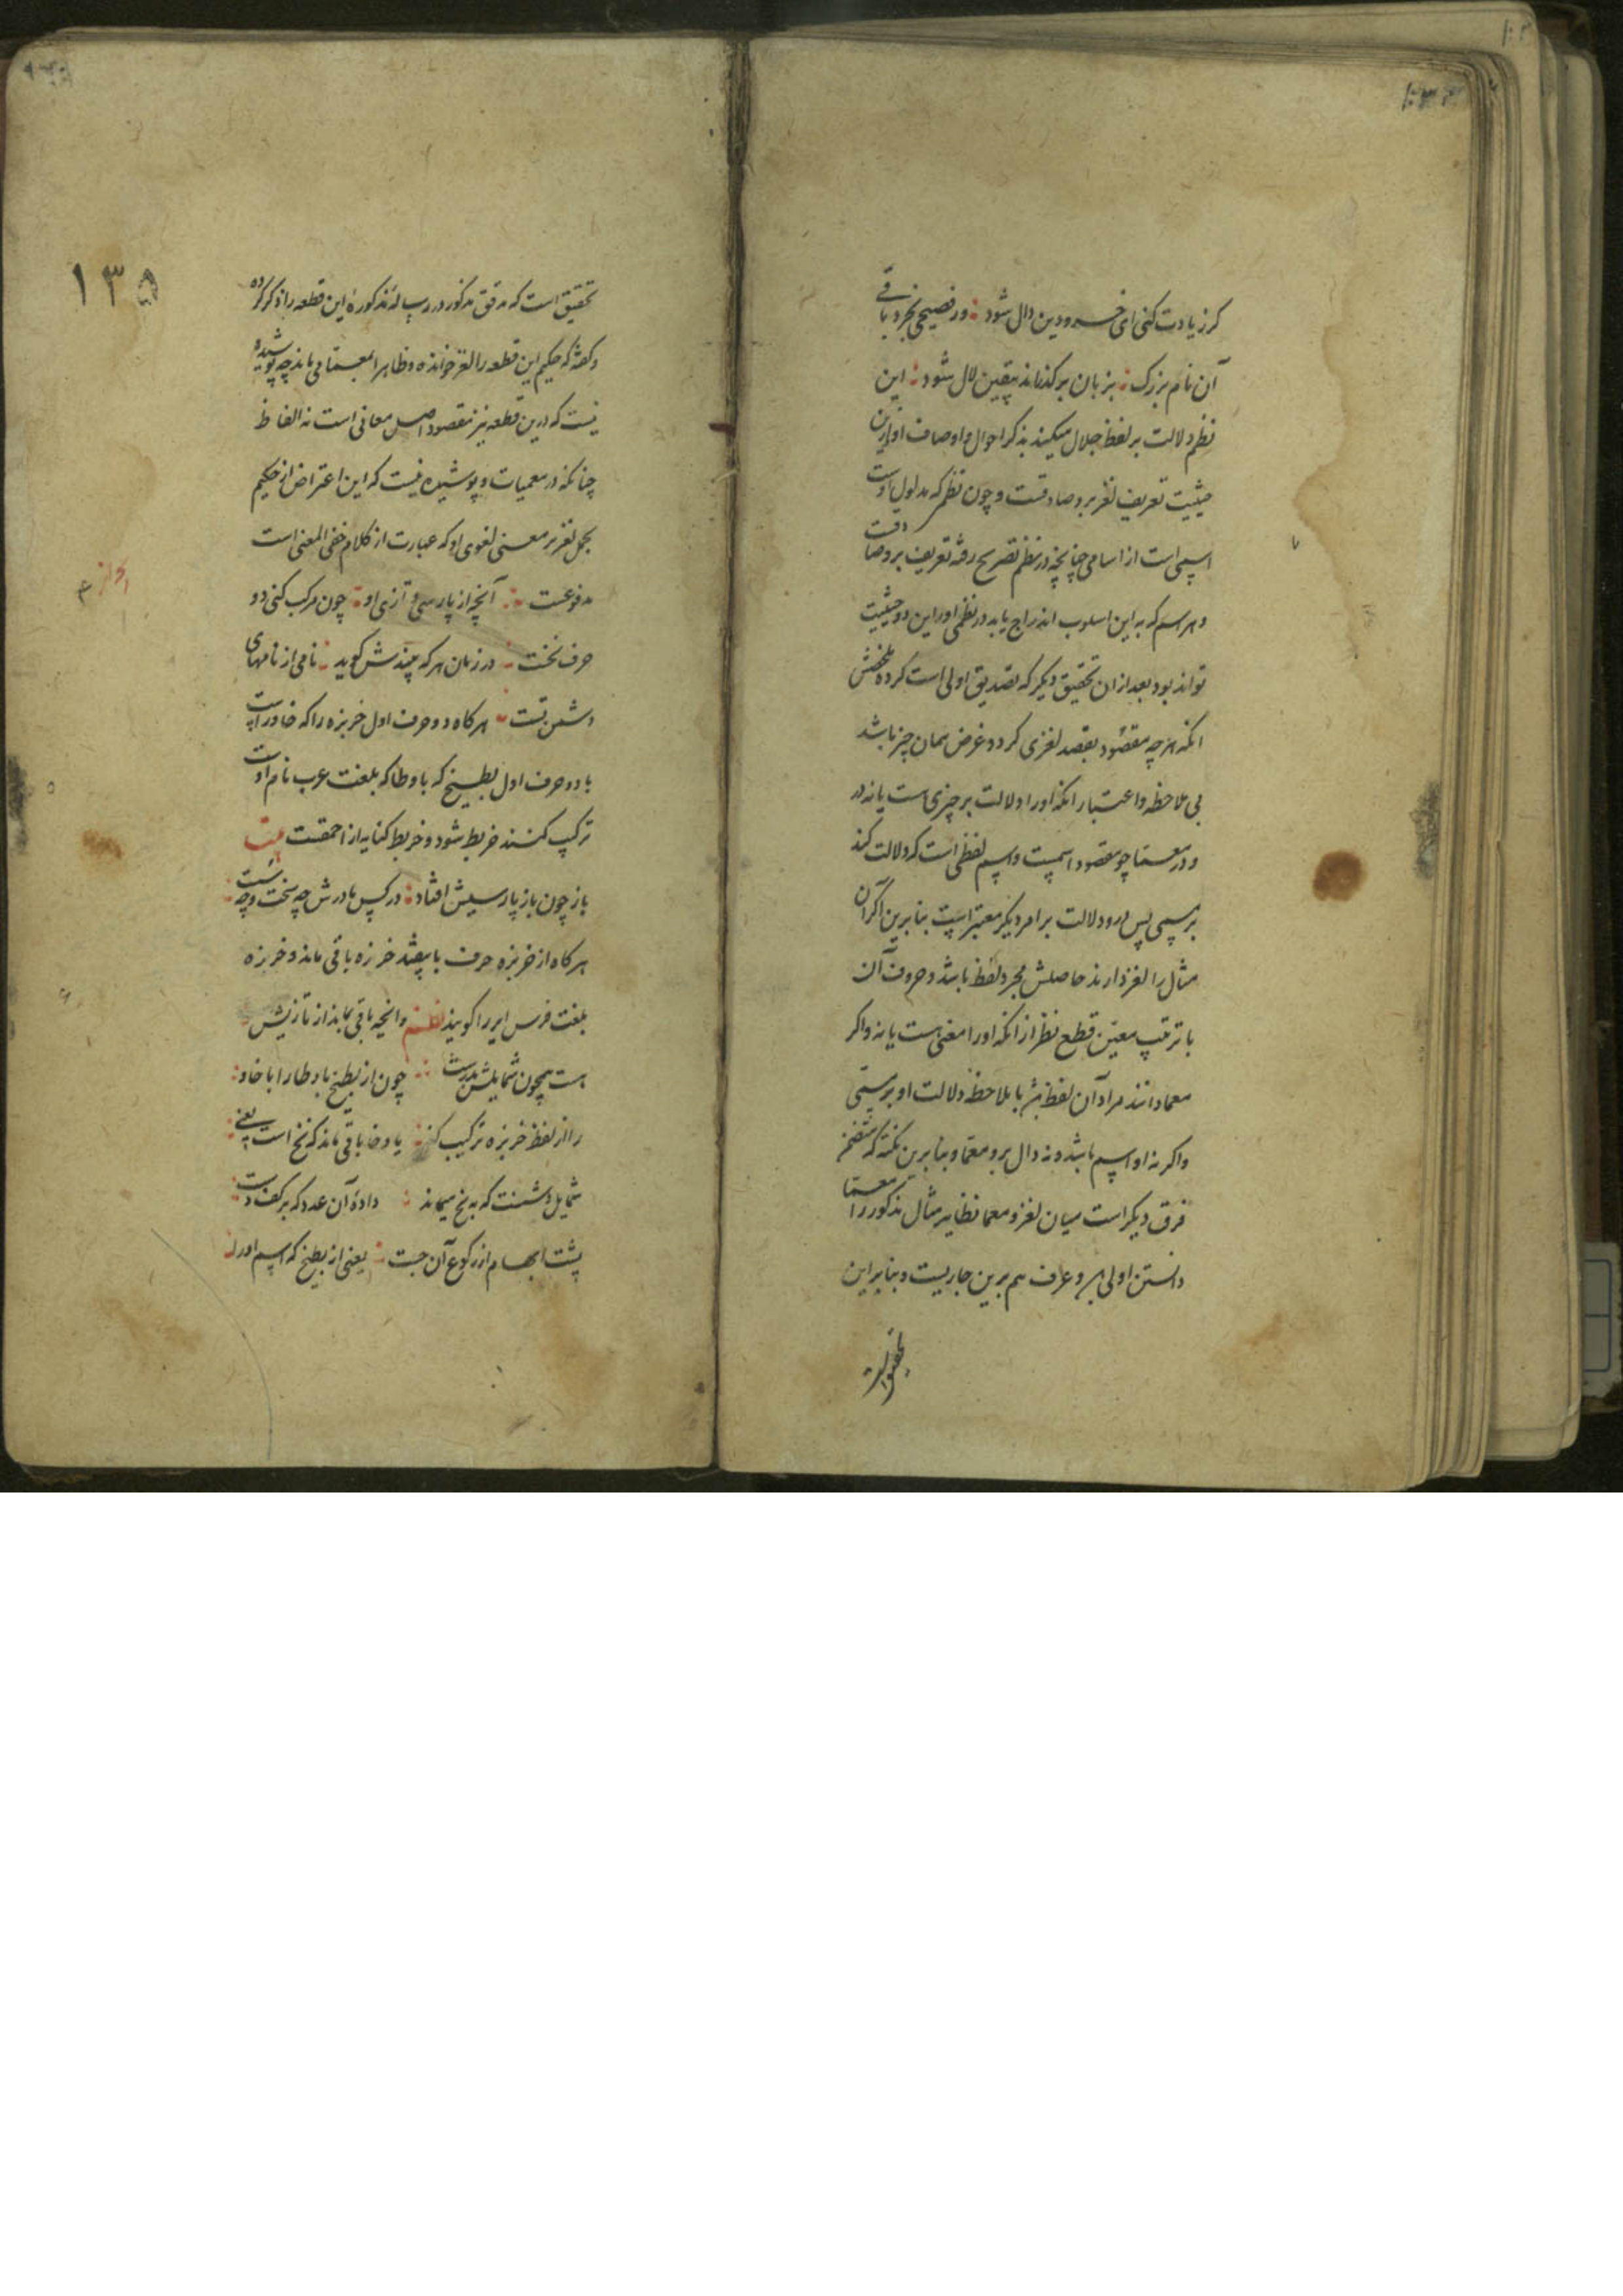 کر زیادت کنی ای خسرو دین دال شود ؛ ور فصیحی بخرد باقے
آن نام بزرک ؛ بزبان بر کذراند بیقین لال شود ؛ این
نظم دلالت بر لفظ جلال میکند بذکر احوال و اوصاف او ازین
حیثیت تعریف لغز برو صادقست و چون نظم که مدلول اوست
اسمی است از اسامی چنانچه در نظم تصریح رفته تعریف برو صادقست
و هر اسم که به این اسلوب اندراج یابد در نظمی او را این دو حیثیت
تواند بود بعد ازان تحقیق دیکر که تصدیق اولی است کرده ملخصش
انکه هرچه مقصود بقصد لغزی کردد غرض همان چیز باشد
بی ملاحظه و اعتبار انکه او را دلالت بر چیزی هست یا نه
و در معما چو مقصود اسمیست و اسم لفظی است که دلالت کند
بر مسمی پس درو دلالت بر امر دیکر معتبر است بنا برین اکر آن
مثال را لغز دارند حاصلش مجرد لفظ باشد و حروف آن
با ترتیب معین قطع نظر از انکه او را معنی هست یا نه و اکر
معما دانند مراد آن لفظ باشد با ملاحظه دلالت او بر مسمی
واکر نه او اسم باشد و نه دال برو معما و بنا برین نکته که متضمن
فرق دیکر است میان لغز و معما نظایر مثال مذکور را معما
دانستن اولی و عرف هم برین جاریست و بنا براین
۱۳۵
تحقیق است که مدقق مذکور در رساله مذکوره این قطعه را ذکر کرده
و کفته که حکیم این قطعه را لغز خوانده و ظاهرا بمعما می ماند چه پوشیده
نیست که درین قطعه نیز مقصود اصل معانی است نه الفاظ
چنانکه در معمیات و پوشیده نیست که این اعتراض از حکیم
بحمل لغز بر معنی لغوی او که عبارت از کلام خفی المعنی است
مدفوعست ؛ آنچه از پارسی و تازی او ؛ چون مرکب کنی دو
حرف نخست ؛ در زمان هر که بیندش کوید ؛ نامی از نامهای
دشمن تست ؛ هرکاه دو حرف اول خربزه را که خا و راست
با دو حرف اول بطیخ که با و طا که بلغت عرب نام اوست
ترکیب کنند خربط شود و خربط کنایه از احمقست بیت
باز چون باز پارسیش افتاد ؛ در کس مادرش چه سخت و چه سست
هرکاه از خربزه حرف با بیفتد خرزه باقی ماند و خرزه
بلغت فرس ایر را کویند نظم وانچه باقی بماند از تازیش
هست همچون شمایلش بدرست ؛ چون از بطیخ با و طا را با خا و
را از لفظ خربزه ترکیب کنند یا و خا باقی ماند که یخ است یعنے
شمایل دشمنت که به یخ میماند ؛ دادهٔ آن عدد که بر کف دست
پشت ابهام از رکوع آن جست ؛ یعنی از بطیخ که اسم اورا